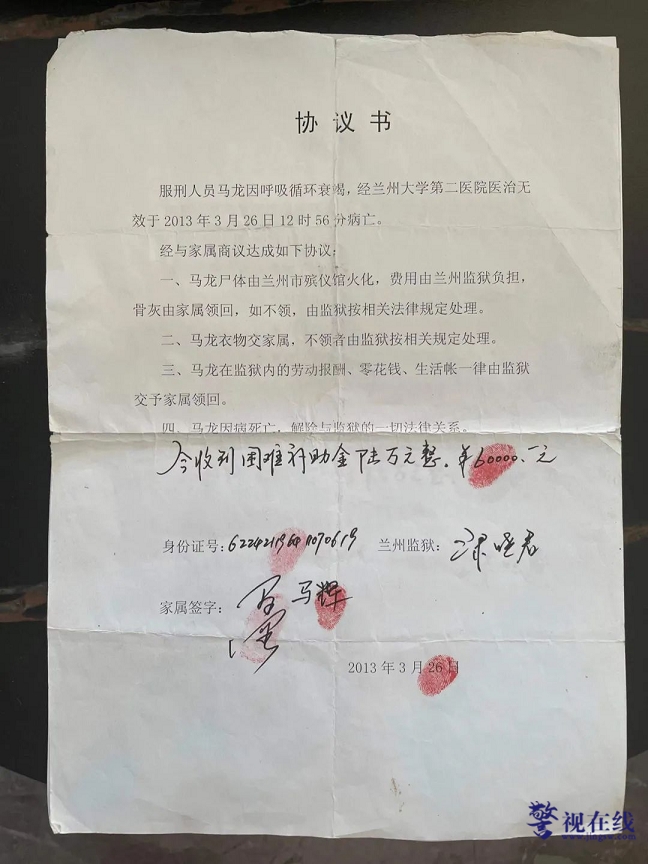 协议书
服刑人员马龙因呼吸循环衰竭，经兰州大学第二医院医治无
效于2013年3月26日12时56分病亡。
经与家属商议达成如下协议：
一、马龙尸体由兰州市殡仪馆火化，费用由兰州监狱负担，
骨灰由家属领回，如不领，由监狱按相关法律规定处理。
二、马龙衣物交家属，不领者由监狱按相关规定处理。
三、马龙在监狱内的劳动报酬、零花钱、生活帐一律由监狱
交予家属领回。
四、马龙因病死亡，解除与监狱的一切法律关系。
今收到困难补助金陆万元整。¥60000.一元
身份证号： 兰州监狱：
家属签字： 马辉
2013年3月26日
警视在线